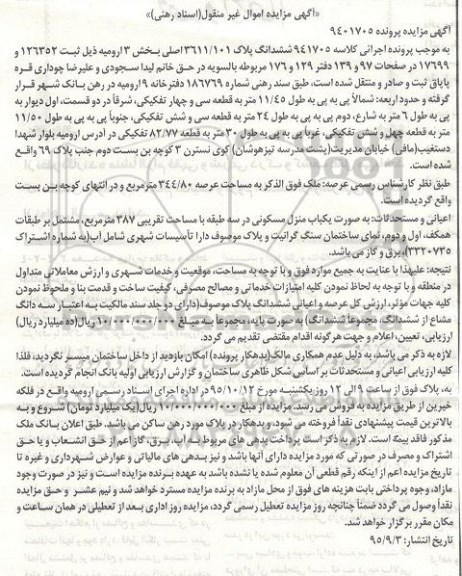 «آگهی مزایده اموال غیر منقول(اسناد رهنی)»
آگهی مزایده پرونده ۹۴۰۱۷۰۵
به موجب پرونده اجرائی کلاسه ۹۴۱۷۰۵ ششدانگ پلاک ۳۶۱۱/۱۰۱ اصلی بخش ۳ ارومیه ذیل ثبت ۱۲۶۳۵۲ و
۱۷۶۹۹ در صفحات ۹۷ و ۱۳۹ دفتر ۱۲۹ و ۱۷۶ مربوطه بالسویه در حق خانم لیدا سجودی و علیرضا چوداری قره
پاپاق ثبت و صادر و منتقل شده است، طبق سند رهنی شماره ۱۸۶۷۶۹ دفترخانه ۹ ارومیه در رهن بانک شهر قرار
گرفته و حدود اربعه: شمالاً پی به پی به طول ۱۱/۴۵ متر به قطعه سی و چهار تفکیکی، شرقاً در دو قسمت، اول دیوار به
پی به طول ۶ متر به شارع، دوم پی به پی به طول ۲۴ متر به قطعه سی و شش تفکیکی، جنوباً پی به پی به طول ۱۱/۵۰
متر به قطعه چهل و شش تفکیکی، غرباً پی به پی به طول ۳۰ متر به قطعه ۸۲/۷۷ تفکیکی در آدرس ارومیه بلوار شهدا
دستغیب(مافی) خیابان مدیریت(پشت مدرسه تیزهوشان) کوی نسترن ۳ کوچه بن بست دوم جنب پلاک ۶۹ واقع
شده است.
طبق نظر کارشناس رسمی عرصه: ملک فوق الذکر به مساحت عرصه ۳۴۴/۸۰ مترمربع و در انتهای کوچه بن بست
واقع گردیده است.
اعیانی و مستحدثات: به صورت یکباب منزل مسکونی در سه طبقه با مساحت تقریبی ۳۸۷ مترمربع، مشتمل بر طبقات
همکف، اول و دوم، نمای ساختمان سنگ گرانیت و پلاک موصوف دارا تأسیسات شهری شامل آب(به شماره اشتراک
۳۳۲۰۷۳۵)، برق و گاز می باشد.
نتیجه: علیهذا با عنایت به جمیع موارد فوق و با توجه به مساحت، موقعیت و خدمات شهری و ارزش معاملاتی متداول
در منطقه و با توجه به لحاظ نمودن کلیه امتیازات خدماتی و مصالح مصرفی، کیفیت ساخت و قدمت بنا و ملحوظ نمودن
کلیه جهات مؤثر، ارزش کل عرصه و اعیانی ششدانگ پلاک موصوف(دارای دو جلد سند مالکیت به اعتبار سه دانگ
مشاع از ششدانگ، مجموعاً ششدانگ) به صورت پایه، مجموعاً به مبلغ ۱۰/۰۰۰/۰۰۰/۰۰۰ ریال(ده میلیارد ریال)
ارزیابی، تعیین، اعلام و جهت هرگونه اقدام مقتضی تقدیم می گردد.
لازه به ذکر می باشد، به دلیل عدم همکاری مالک(بدهکار پرونده) امکان بازدید از داخل ساختمان میسر نگردید، فلذا
کلیه ارزیابی اعیانی و مستحدثات بر اساس شکل ظاهری ساختمان و گزارش ارزیابی اولیه بانک انجام گردیده است.
به، پلاک فوق از ساعت ۹ الی ۱۲ روز یکشنبه مورخ ۹۵/۱۰/۱۲ در اداره اجرای اسناد رسمی ارومیه واقع در فلکه
خیرین از طریق مزایده به فروش می رسد. مزایده از مبلغ ۱۰/۰۰۰/۰۰۰/۰۰۰ ریال(یک میلیارد تومان) شروع و به
بالاترین قیمت پیشنهادی نقداً فروخته می شود، و بدهکار در پلاک مورد رهن ساکن می باشد. طبق اعلان بانک ملک
مذکور فاقد بیمه است. لازم به ذکر است پرداخت بدهی های مربوط به آب، برق، گاز اعم از حق انشعاب و یا حق
اشتراک و مصرف در صورتی که مورد مزایده دارای آنها باشد و نیز بدهی های مالیاتی و عوارض شهرداری و غیره تا
تاریخ مزایده اعم از اینکه رقم قطعی آن معلوم شده یا نشده باشد به عهده برنده مزایده است و نیز در صورت وجود
مازاد، وجوه پرداختی بابت هزینه های فوق از محل مازاد به برنده مزایده مسترد خواهد شد و نیم عشر و حق مزایده
نقداً وصول می گردد ضمناً چنانچه روز مزایده تعطیل رسمی گردد، مزایده روز اداری بعد از تعطیلی در همان ساعت و
مکان مقرر برگزار خواهد شد.
تاریخ انتشار: ۹۵/۹/۳